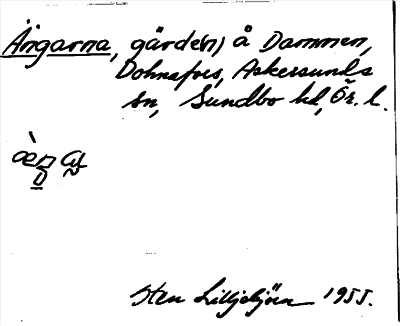 Ängarna, gärde(n) å Dammen,
Dohnafors, Askersunds
sn, Sundbo hd, Ör. l.
Sten Liljebjörn 1955.